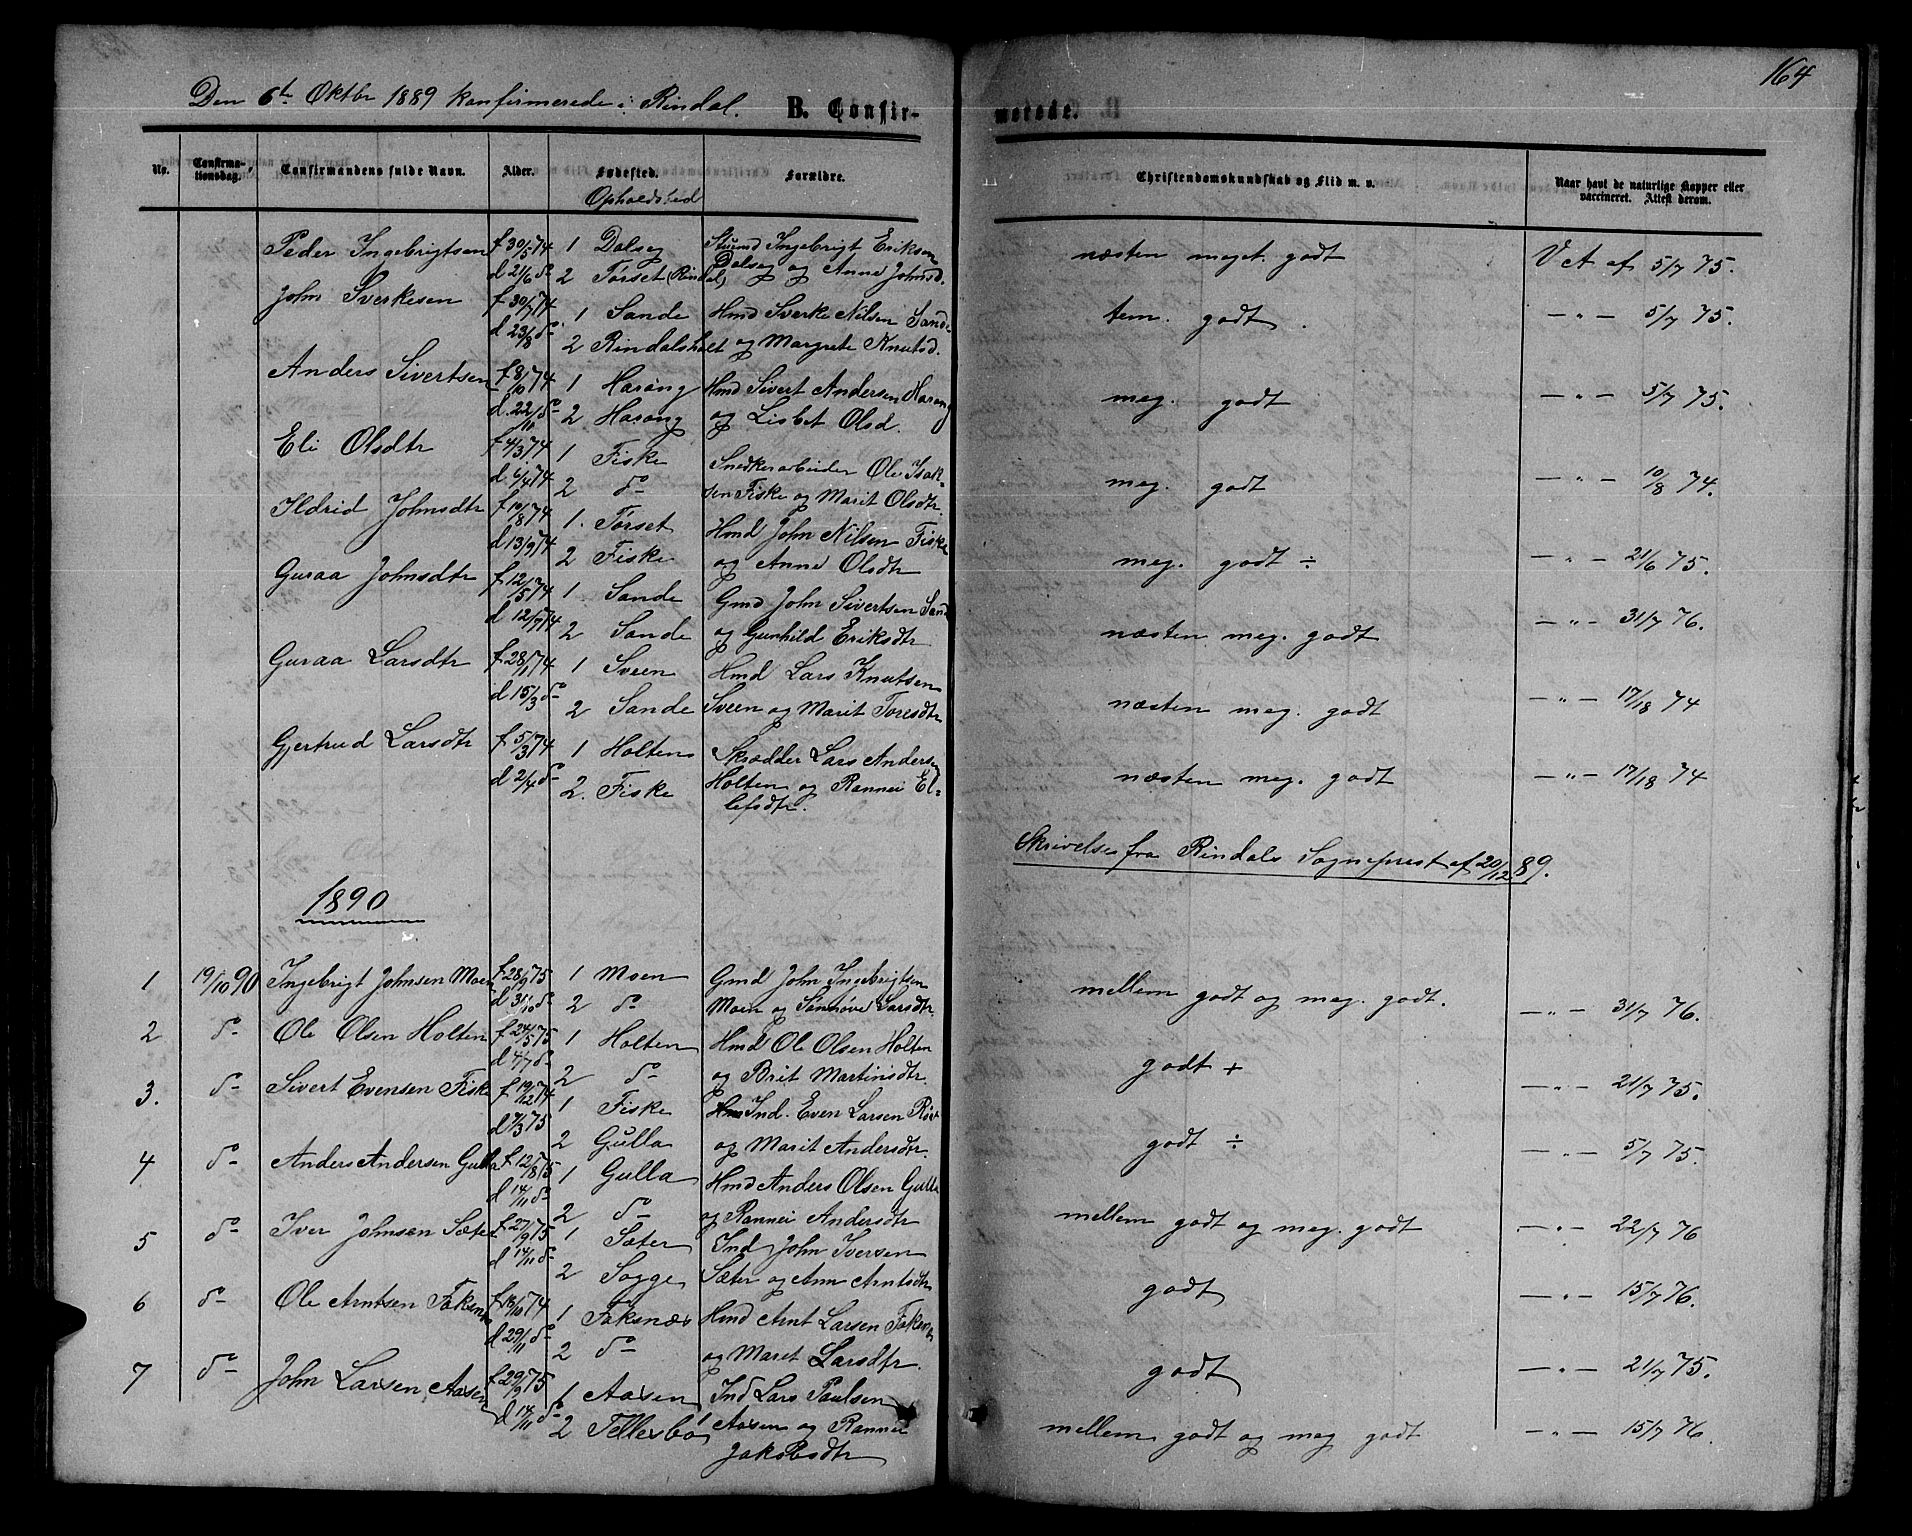 164
Den 6te Oktbr 1889 konfirmerede i Rindal.
B. Confir-
merede.
No.
Confirma-
tionsdag.
Confirmandens fulde Navn.
Alder.
Fødested.
Opholdssted
Forældre.
Christendomskundskab og Flid m. v.
Naar havt de naturlige Kopper eller
vaccineret. Attest derom.
Peder Ingebrigtsen f 30/5 74 1 Dalseg Ingebrigt Eriksen næsten meget godt V A af 5/7 75.
d 21/6 do 2 Tørset (Rindal) Dalseg og Anne Johnsd.
John Sverkesen f 30/7 74 1 Sande Hmd Sverke Nilsen Sande tem. godt. — " — 5/7 75.
d 23/8 do 2 Rindalsholt og Margrete Knutsd.
Anders Sivertsen f 8/10 74 1 Harang Hmd Sivert Andersen Harang meg. godt — " — 5/7 75.
d. 22/10 do 2 Harang og Lisbet Olsd.
Eli Olsdtr f 4/3 74 1 Fiske Snedkerarbeider Ole Isak- meg. godt — " — 10/8 74.
d. 6/4 74 2 do sen Fiske og Marit Olsdtr.
Ildrid Johnsdtr f 10/8 74 1. Tørset Hmd John Nilsen Fiske meg. godt ÷ — " — 21/6 75.
d 13/9 74 2 Fiske og Anne Olsdtr
Guraa Johnsdtr f 12/5 74 1 Sande Gmd John Sivertsen Sande næsten meg. godt — " — 31/7 76.
d 12/7 74 2 Sande og Gunhild Eriksdtr
Guraa Larsdtr f 28/1 74 1 Sveen Hmd Lars Knutsen næsten meg. godt — " — 17/18 74
d 15/3 do 2 Sande Sveen og Marit Toresdtr
Gjertrud Larsdtr f 5/3 74 1 Holten Skrædder Lars Andersen næsten meg. godt — " — 17/18 74
d 2/4 do 2. Fiske Holten og Rannei El-
lefsdtr.
Skrivelse fra Rindals Sogneprest af 20/12 89.
1890
1 19/10 90 Ingebrigt Johnsen Moen f 28/9 75 1 Moen Gmd John Ingebrigtsen mellem godt og meg. godt. — " — 31/7 76.
d 31/10 do 2 do Moen og Sønnøve Larsdtr
2 do Ole Olsen Holten f 24/5 75 1 Holten Hmd Ole Olsen Holten godt + — " — 21/7 75.
d 4/7 do 2 do og Brit Martinsdtr.
3. do Sivert Evensen Fiske f 19/12 74 1 Fiske Ind. Even Larsen godt ÷ — " — 5/7 75.
d 7/3 75 2 Gulla og Marit Andersdtr.
4 do Anders Andersen Gulla f 12/8 75 1 Gulla Hmd Anders Olsen Gulla mellem godt og meg. godt — " — 22/7 76
d 14/11 do 2 do og Rannei Andersdtr
5 do Iver Johnsen Sæter f 27/9 75 1 Sæter Ind John Iversen godt — " — 15/7 76.
d 14/11 do 2 Sogge Sæter og Ann Arntsdtr
6 do Ole Arntsen Foksnæs f 18/10 74 1 Foksnæs Hmd Arnt Larsen Foksnæs godt — " — 21/7 75.
d 29/11 do 2 do og Maret Larsdtr.
7 do John Larsen Aasen f 29/9 75 1 Aasen Ind Lars Paulsen mellem godt og meg godt — " — 15/7 76.
d 14/11 do 2 Tellesbø Aasen og Rannei
Jakobsdtr